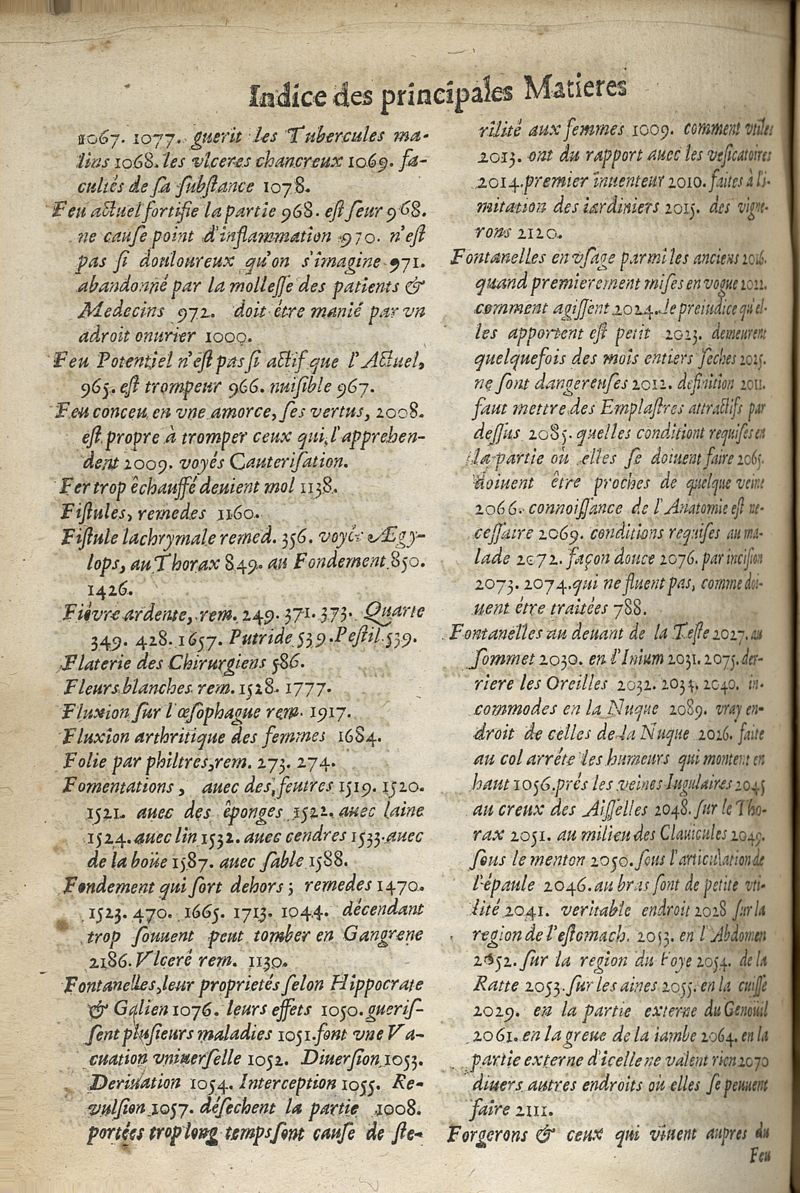 Indice des principales Matieres
1067. 1077. guerit les Tubercules ma-
lins 1068. les vlceres chancreux 1069. fa-
cultés de sa substance 1078.
Feu actuel fortifie la partie 968. est seur 968.
ne cause point d'inflammation 970. n'est
pas si douloureux qu'on s'imagine 971.
abandonné par la mollesse des patients &
Medecins 972. doit étre manié par vn
adroit onurier 1000.
Feu Potentiel n'est pas si actif que l'Actuel,
965. est trompeur 966. nuisible 967.
Feu conceu en vne amorce, ses vertus, 2008.
est propre à tromper ceux qui l'apprehen-
dent 2009. voyés Cauterisation.
Fer trop êchauffé deuient mol 1138.
Fistules, remedes 1160.
Fistule lachrymale remed. 356. voyés Ægy-
lops, au Thorax 849. au Fondement 850.
1426.
Fiévre ardente, rem. 249. 371. 373. Quarte
349. 428. 1657. Putride 539. Pestil. 539.
Flaterie des Chirurgiens 586.
Fleurs blanches rem. 1528. 1777.
Fluxion sur l'œsophague rem. 1917.
Fluxion arthritique des femmes 1684.
Folie par philtres, rem. 273. 274.
Fomentations, auec des feutres 1519. 1520.
1521. auec des êponges 1522. auec laine
1524. auec lin 1532. auec cendres 1533. auec
de la boüe 1587. auec sable 1588.
Fondement qui sort dehors; remedes 1470.
1523. 470. 1665. 1713. 1044. décendant
trop souuent peut tomber en Gangrene
2186. Vlceré rem. 1130.
Fontanelles, leur proprietés selon Hippocrate
& Galien 1076. leurs effets 1050. gueris-
sent plusieurs maladies 1051. font vne Va-
cuation vniuerselle 1052. Diuersion 1053.
Deriuation 1054. Interception 1055. Re-
vulsion 1057. désechent la partie 1008.
portées trop long temps sont cause de ste-
rilité aux femmes 1009. comment vtiles
2013. ont du rapport auec les vesicatoires
2014. premier inuenteur 2010. faites à l'i-
mitation des iardiniers 2015. des vigne-
rons 2120.
Fontanelles en vsage parmi les anciens 2016.
quand premierement mises en vogue 2022.
comment agissent 2024. le preiudice qu'el-
les apportent est petit 2023. demeurent
quelquefois des mois entiers seches 2025.
ne sont dangereuses 2012. definition 2011.
faut mettre des Emplastres attractifs par
dessus 2085. quelles conditiont requises en
la partie où elles se doiuent faire 2065.
doiuent étre proches de quelque veine
2066. connoissance de l'Anatomie est ne-
cessaire 2069. conditions requises au ma-
lade 2072. façon douce 2076. par incision
2073. 2074. qui ne fluent pas, comme doi-
uent étre traitées 788.
Fontanelles au deuant de la Teste 2027. au
sommet 2030. en l'Inium 2031. 2075. der-
riere les Oreilles 2032. 2034. 2040. in-
commodes en la Nuque 2089. vray en-
droit de celles de la Nuque 2026. faite
au col arréte les humeurs qui montent en
haut 1056. prés les veines Iugulaires 2045
au creux des Aisselles 2048. sur le Tho-
rax 2051. au milieu des Clauicules 2049.
sous le menton 2050. sous l'articulation de
l'épaule 2046. au bras sont de petite vti-
lité 2041. veritable endroit 2028 sur la
region de l'estomach. 2053. en l'Abdomen
2052. sur la region du Foye 2054. de la
Ratte 2053. sur les aines 2055. en la cuisse
2029. en la partie externe du Genoüil
2061. en la greue de la iambe 2064. en la
partie externe d'icelle ne valent rien 2070
diuers autres endroits où elles se peuuent
faire 2111.
Forgerons & ceux qui viuent aupres du
Feu